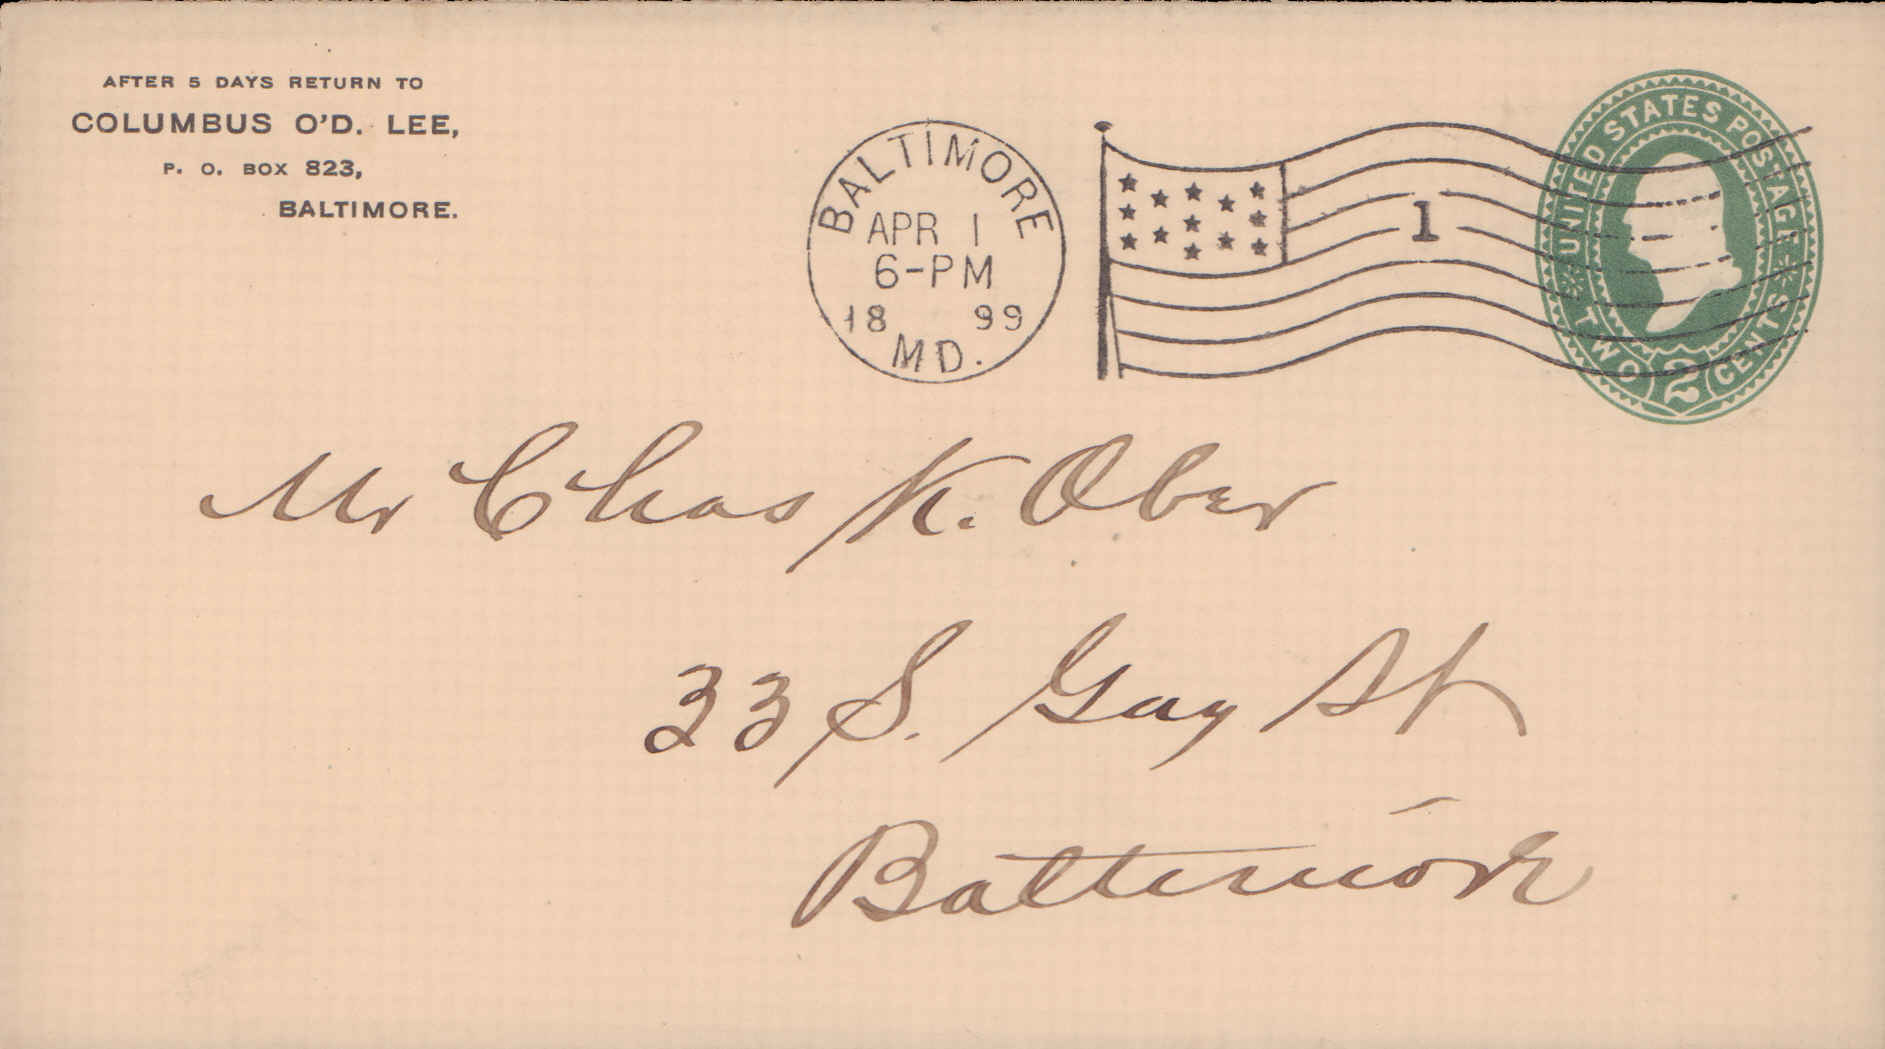 AFTER 5 DAYS RETURN TO
COLUMBUS O'D. LEE,
P. O. BOX 823,
BALTIMORE.
BALTIMORE
APR 1
6-PM
18 99
MD.
1
UNITED STATES POSTAGE
TWO 2 CENTS
Mr Chas K. Ober
33 S. Gay St
Baltimore